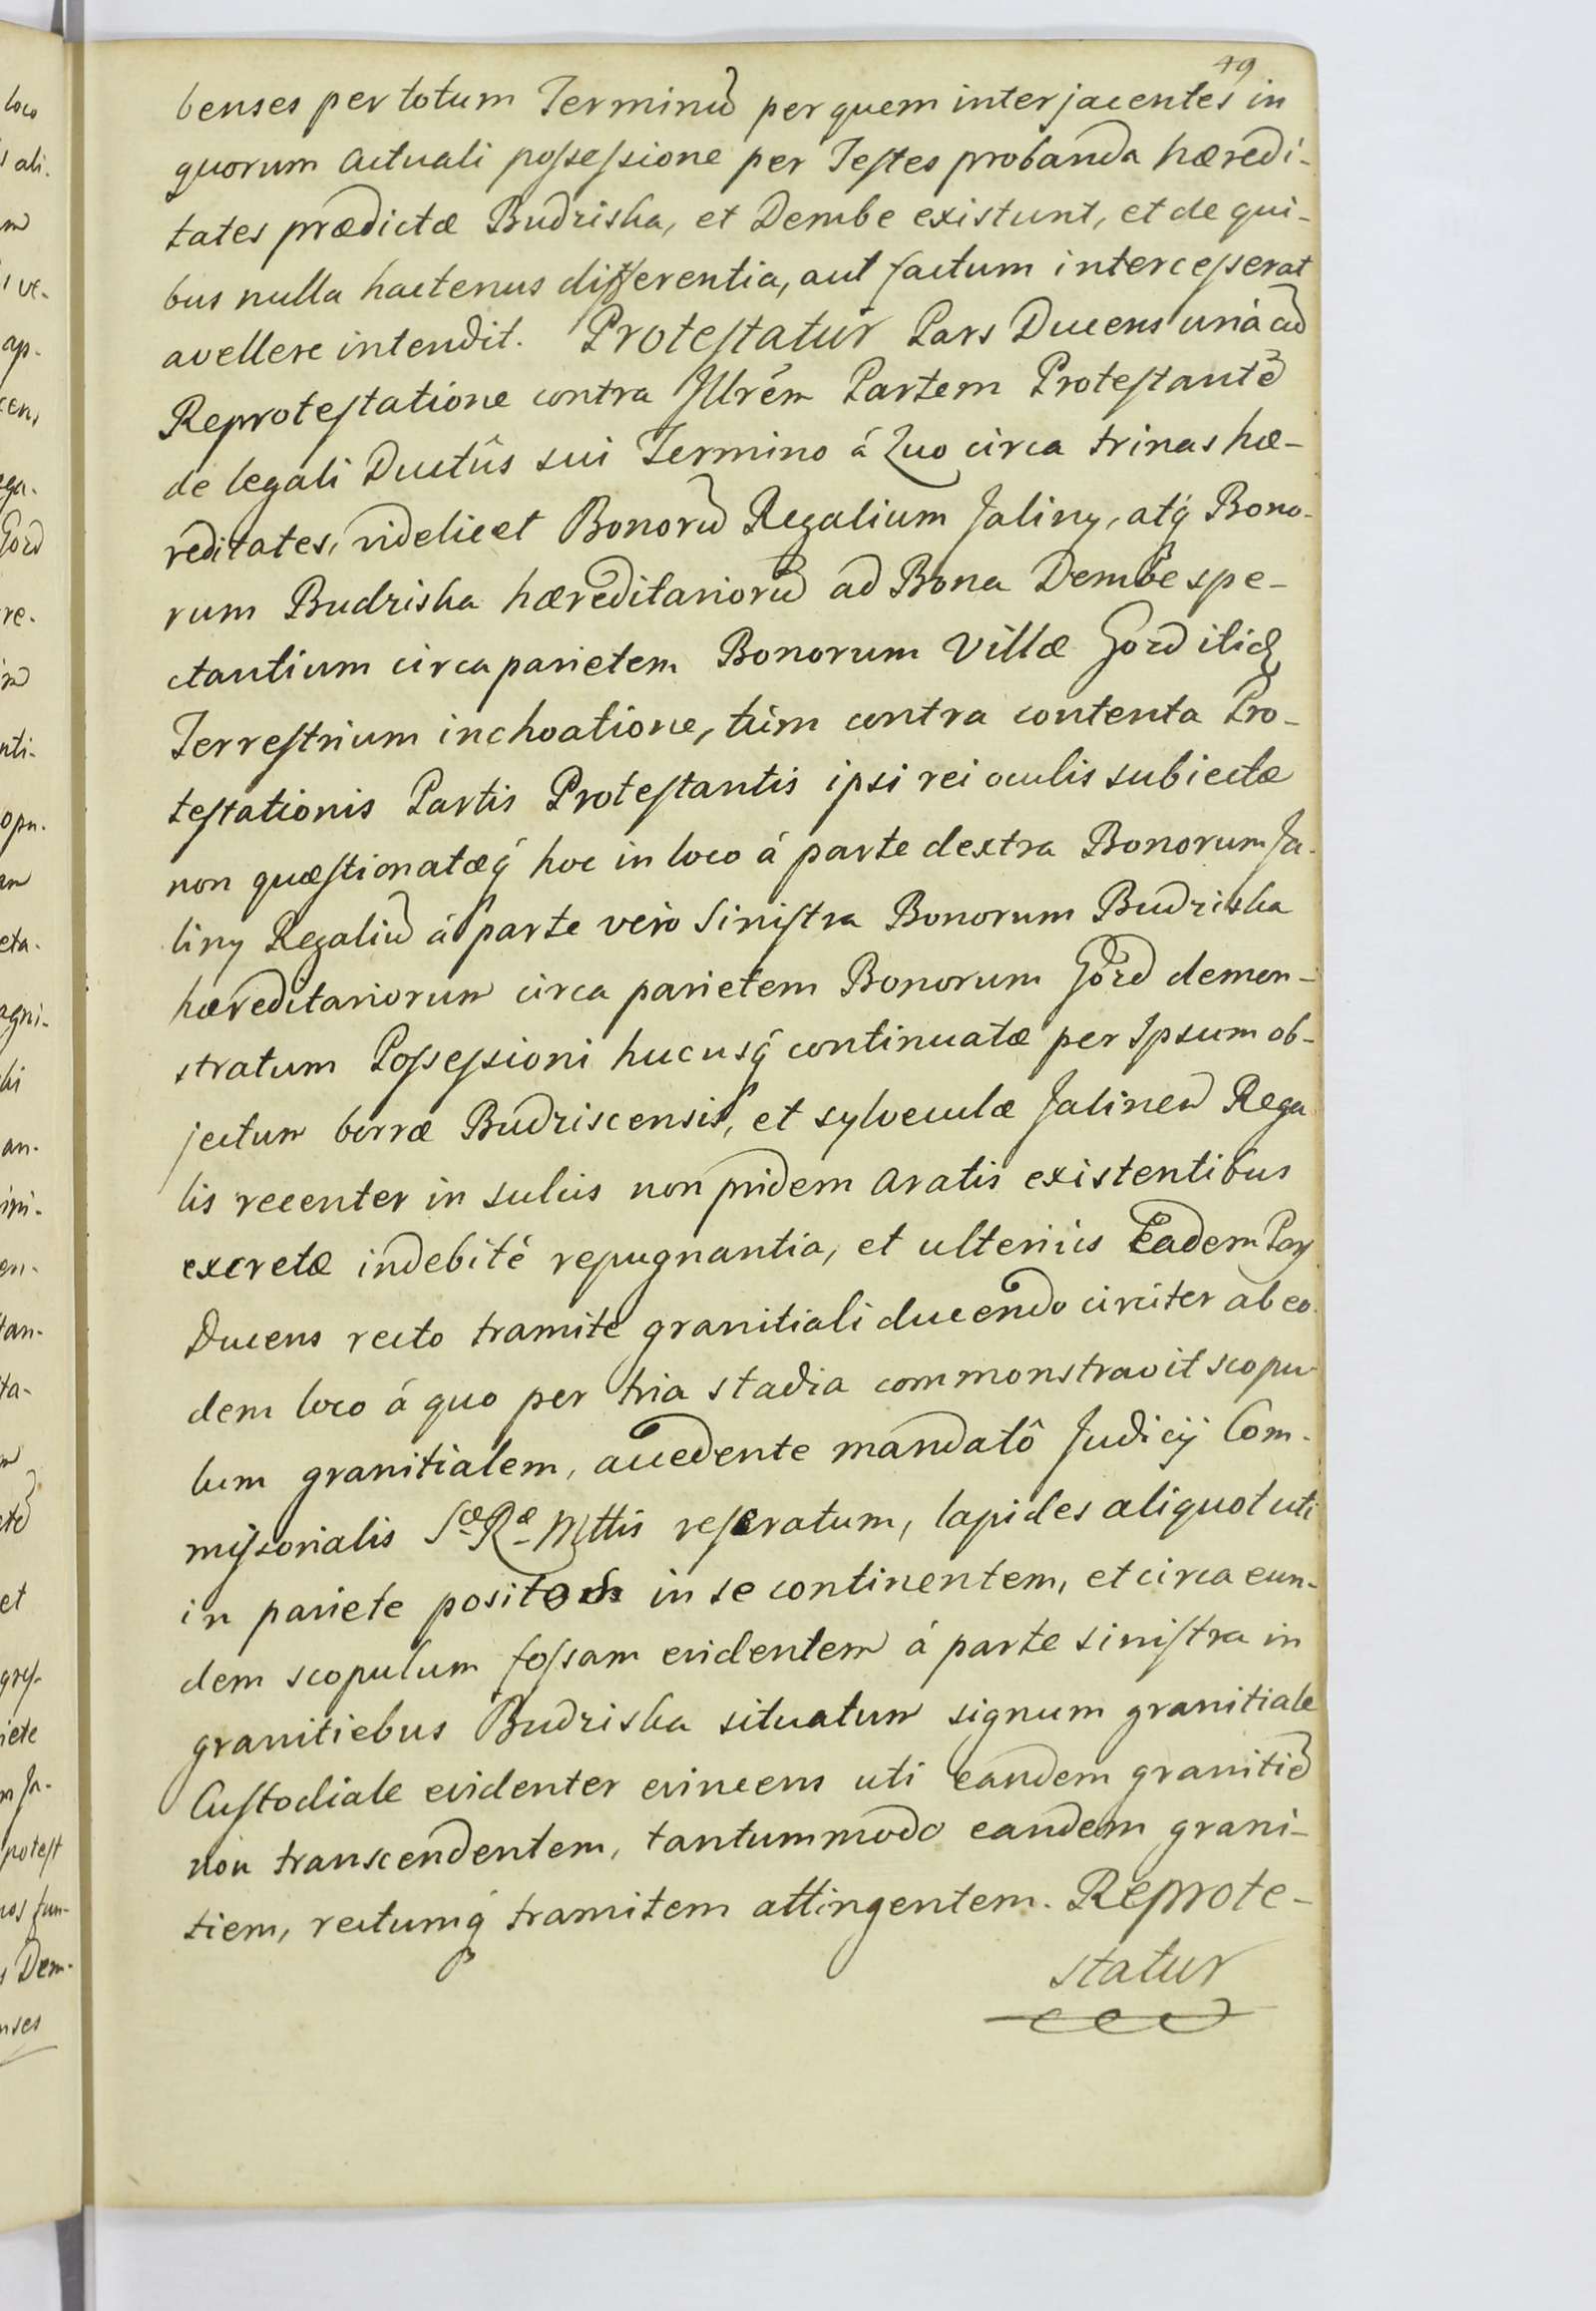 49
benses per totum Terminū per quem interjacentes in
quorum actuali possessione per Testes probanda hæredi-
tates prædictæ Budziska, et Dembe existunt, et de qui-
bus nulla hactenus differentia, aut factum intercesserat
avellere intendit. Protestatur Pars Ducens unà cū
Reprotestatione contra Illrém Partem Protestantē
de legali Ductûs sui Termino á Quo circa trinas hæ-
reditates, videlicet Bonorū Regalium Jaliny, atq́ Bono-
rum Budziska hæreditariorū ad Bona Dembe spe-
ctantium circa parietem Bonorum Villæ Gozd itid
Terrestrium inchoatione, túm contra contenta Pro-
testationis Partis Protestantis ipsi rei oculis subiectæ
non quæstionatæq́ hoc in loco á parte dextra Bonorum Ja-
liny Regaliū á parte vero Sinistra Bonorum Budziska
hæreditariorum circa parietem Bonorum Gozd demon-
stratum Possessioni hucusq́ continuatæ per Ipsum ob-
jectum borræ Budziscensis, et sylveculæ Jalinen Rega
lis recenter in sulcis non pridem aratis existentibus
excretæ indebité repugnantia, et ulteriús Eadem Pars
Ducens recto tramite granitiali ducendo circiter ab eo-
dem loco á quo per tria stadia commonstravit scopu
lum granitialem, accedente mandatô Judicij Com-
missorialis Sæ Ræ Mttis reseratum, lapides aliquot uti
in pariete positos in se continentem, et circa eun-
dem scopulum fossam evidentem á parte sinistra in
granitiebus Budziska situatum signum granitiale
Custodiale evidenter evincens uti eandem granitiē
non transcendentem, tantummodo eandem grani-
tiem, rectumq́ tramitem attingentem. Reprote-
statur
loco
ali.
ve-
ap-
cens
ega-
Gozd
re-
nti-
opu-
eta-
agni-
ki
an-
imi-
en-
tan-
ta-
et
gres-
iete
m Ja-
potest
nos fun-
s Dem-
nses